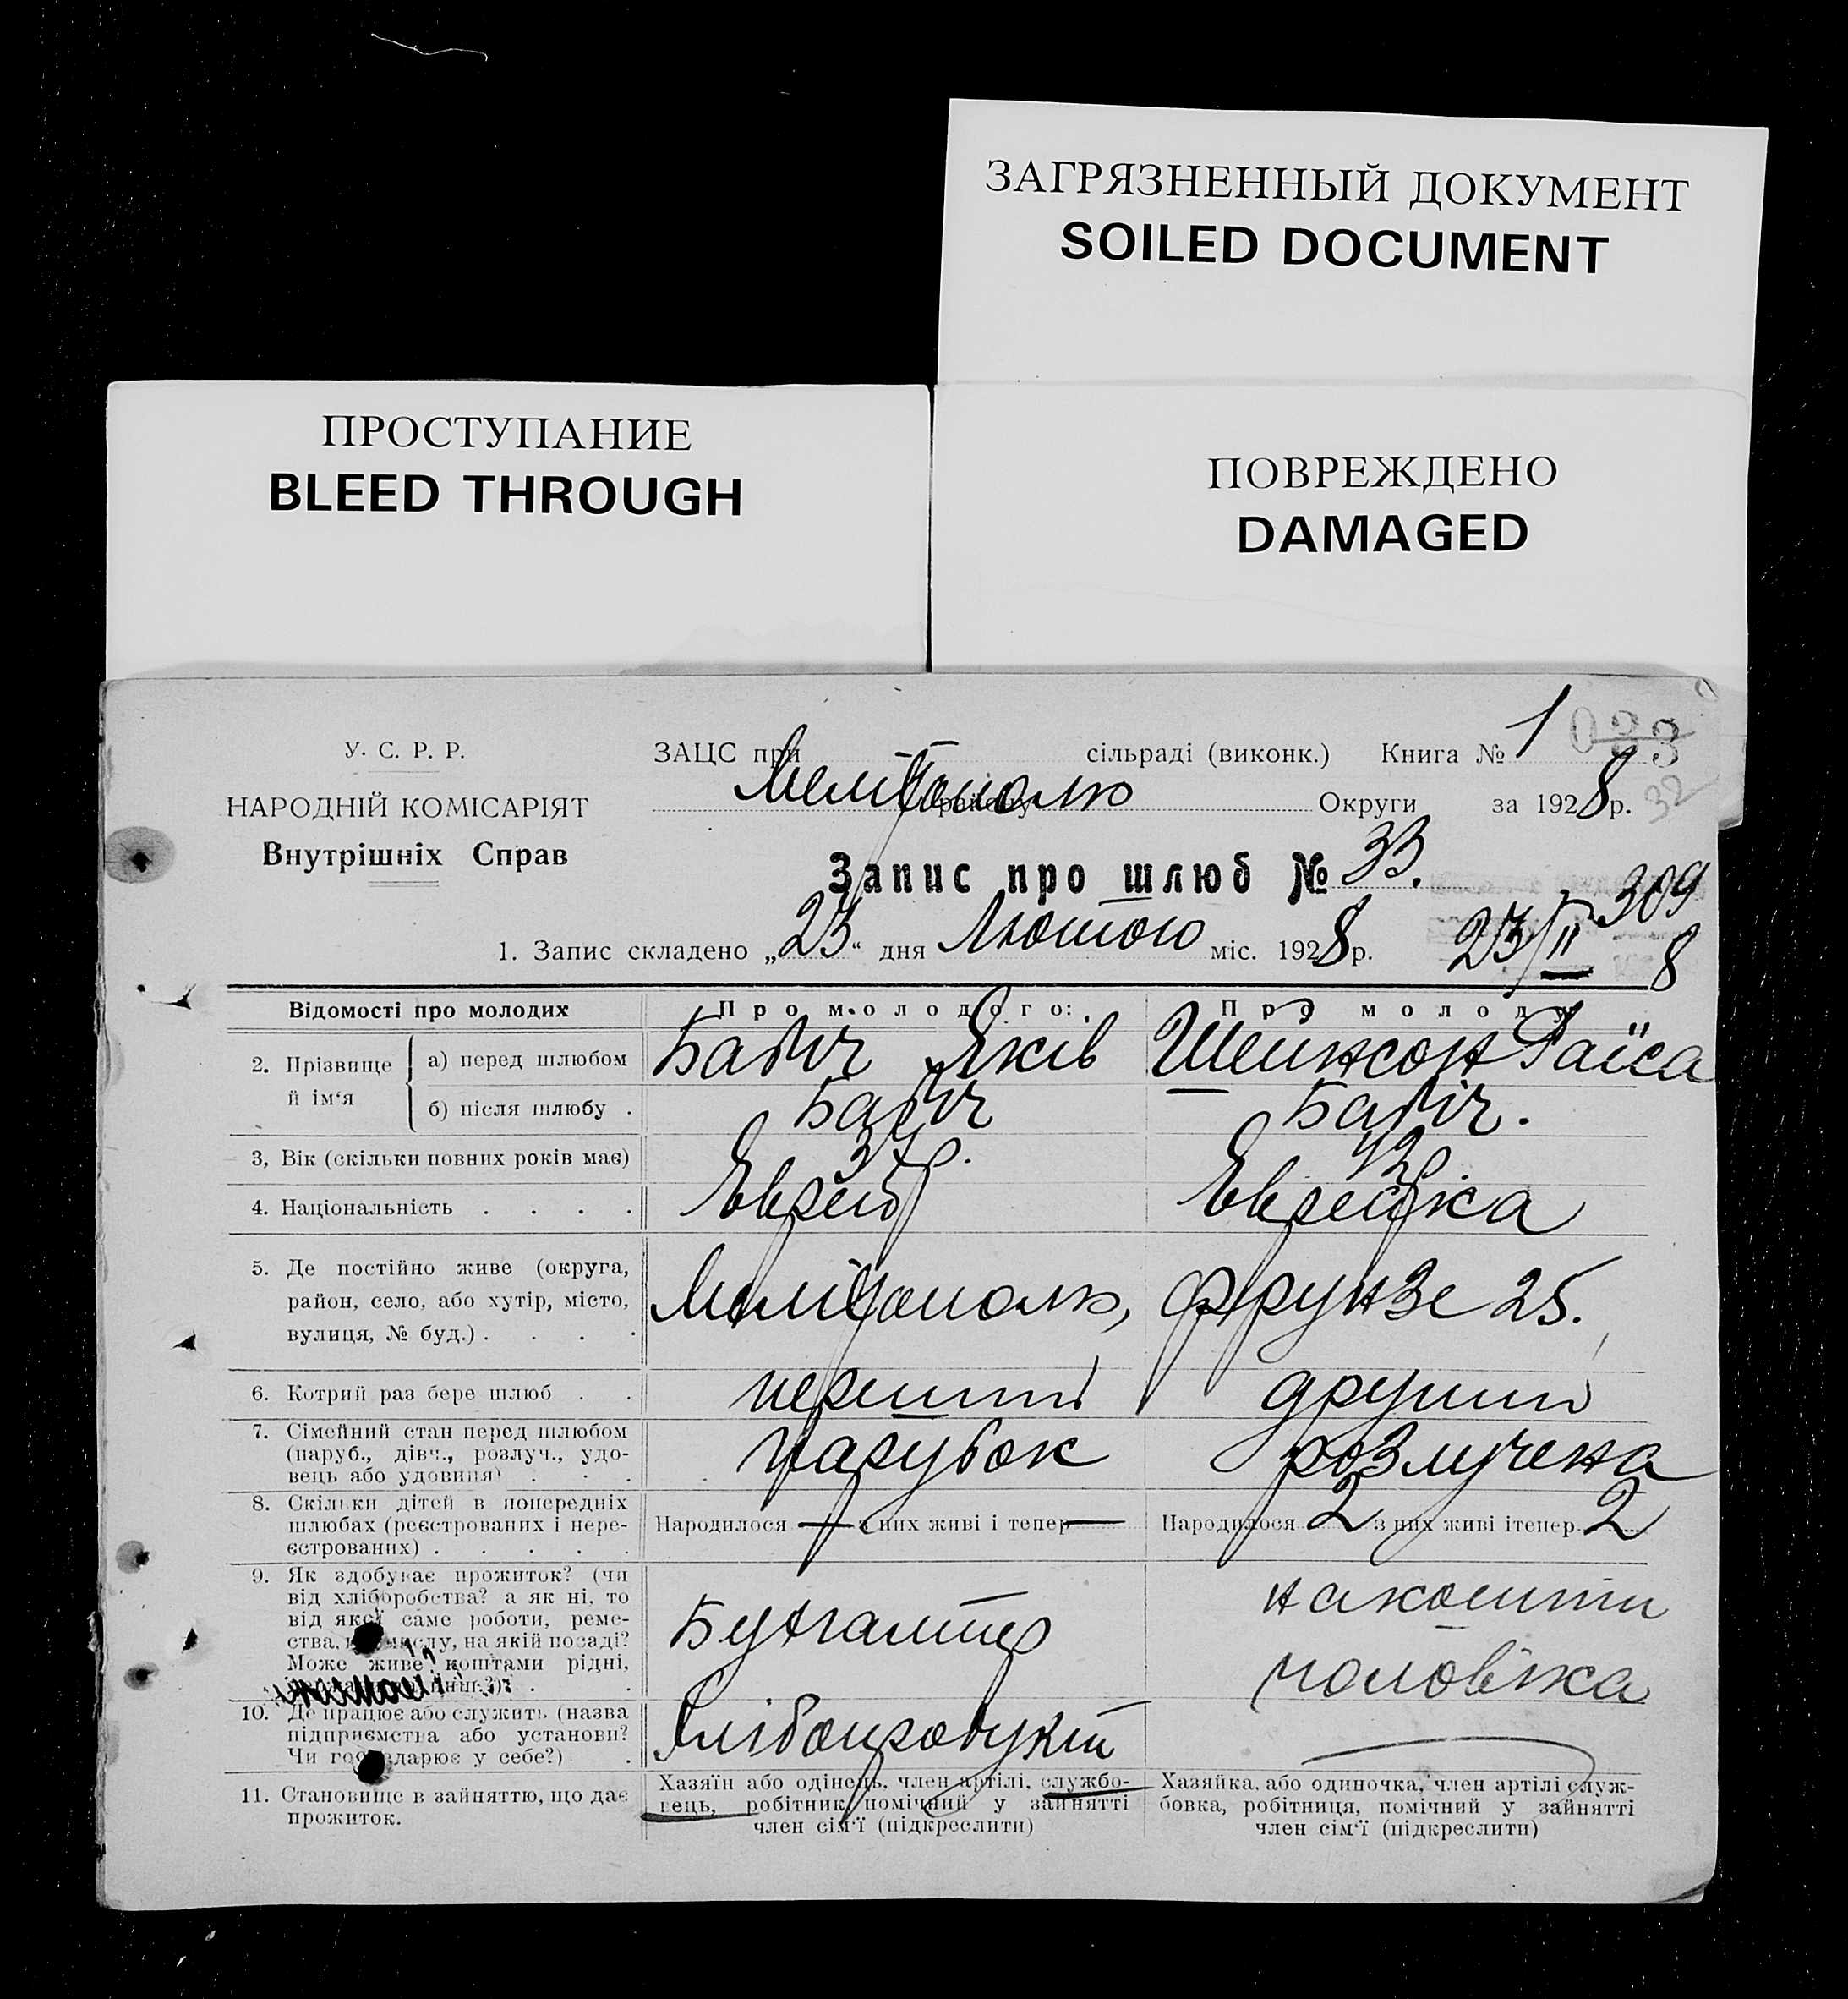 ЗАГРЯЗНЕННЫЙ ДОКУМЕНТ
SOILED DOCUMENT
ПРОСТУПАНИЕ
BLEED THROUGH
ПОВРЕЖДЕНО
DAMAGED
У. С. Р. Р.
НАРОДНІЙ КОМІСАРІЯТ
Внутрішніх Справ
ЗАЦС при сільраді (виконк.) Книга № 1 033
Мелітополю району Округи за 1928 р. 32
Запис про шлюб № 33.
309
1. Запис складено „23“ дня Лютого міс. 1928 р. 23/II 8
Відомості про молодих Про молодого: Про молоду
2. Прізвище й ім‘я а) перед шлюбом Бабіч Яків Шейнсон Раїса
б) після шлюбу . Бабіч Бабіч.
3, Вік (скільки повних років має) 37 р. 42 р
4. Національність . . . . Еврей Еврейка
5. Де постійно живе (округа,
район, село, або хутір, місто,
вулиця, № буд.) . . . .
Мелітополь, Фрунзе 25.
6. Котрий раз бере шлюб . . перший другий
7. Сімейний стан перед шлюбом
(паруб., дівч., розлуч., удо-
вець або удовиця) . . .
парубок розлучена
8. Скільки дітей в попередніх
шлюбах (реєстрованих і нере-
єстрованих) . . . . .
Народилося — з них живі і тепер — Народилося 2 з них живі ітепер 2
9. Як здобуває прожиток? (чи
від хліборобства? а як ні, то
від якої саме роботи, реме-
ства, промислу, на якій посаді?
Може живе коштами рідні,
Бухгалтер
на кошти
чоловіка
10. Де працює або служить (назва
підприємства або установи?
Чи господарює у себе?) .
11. Становище в зайняттю, що дає
прожиток.
Хазяїн або одінець, член артілі, службо-
вець, робітник, помічний у зайнятті
член сім‘ї (підкреслити)
Хазяйка, або одиночка, член артілі служ-
бовка, робітниця, помічний у зайнятті
член сім‘ї (підкреслити)